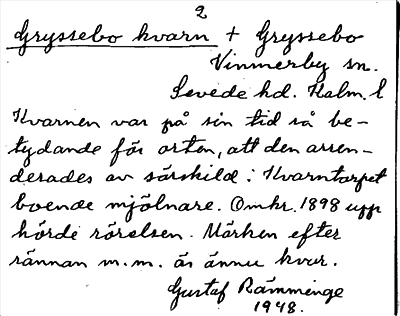 2
Gryssebo kvarn + Gryssebo
Vimmerby sn.
Sevede hd. Kalm. l
Kvarnen var på sin tid så be-
tydande för orten, att den arren-
derades av särskild i Kvarntorpet
boende mjölnare. Omkr. 1898 upp
hörde rörelsen. Märken efter
rännan m.m. äs ännu kvar.
Gustaf Rämminge
1948.